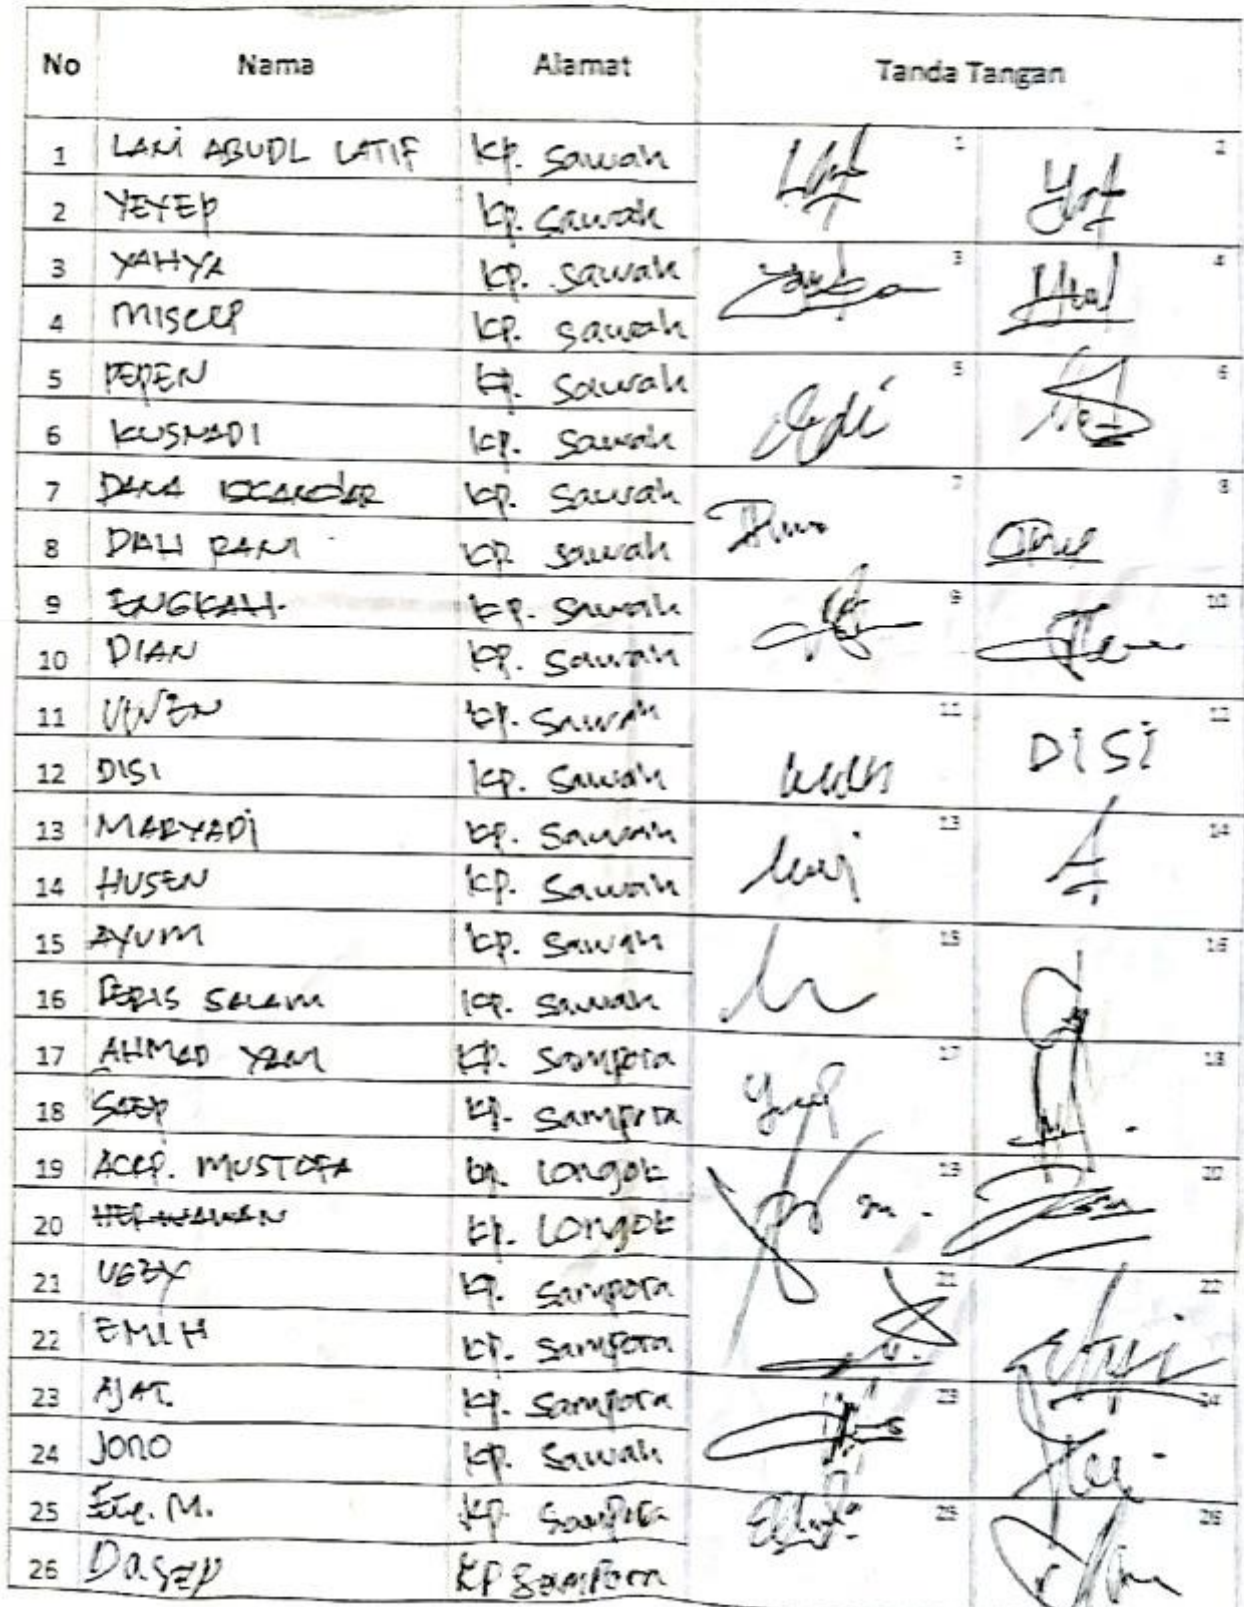 No Nama Alamat Tanda Tangan
1 LANI ABUDL LATIF Kp. Sawah 1 2
2 YEYEP Kp. Sawah
3 YAHYA Kp. Sawah 3 4
4 MISCEP Kp. Sawah
5 PEPEN Kp. Sawah 5 6
6 KUSNADI Kp. Sawah
7 DANA ISKANDAR Kp. Sawah 7 8
8 DALI RANI Kp. Sawah
9 ENGKAH. Kp. Sawah 9 10
10 DIAN Kp. Sawah
11 Kp. Sawah 11 12
12 DISI Kp. Sawah DISI
13 MARYADI Kp. Sawah 13 14
14 HUSEN Kp. Sawah
15 AYUM Kp. Sawah 15 16
16 SALAM Kp. Sawah
17 AHMAD YANI Kp. Sampora 17 18
18 SAEP Kp. Sampora
19 ACEP. MUSTOFA Kp. Longok 19 20
20 HERMAWAN Kp. Longok
21 Kp. Sampora 21 22
22 EMIH Kp. Sampora
23 AJAT. Kp. Sampora 23 24
24 JONO Kp. Sawah
25 M. Kp. Sampora 25 26
26 Dasep Kp Sampora